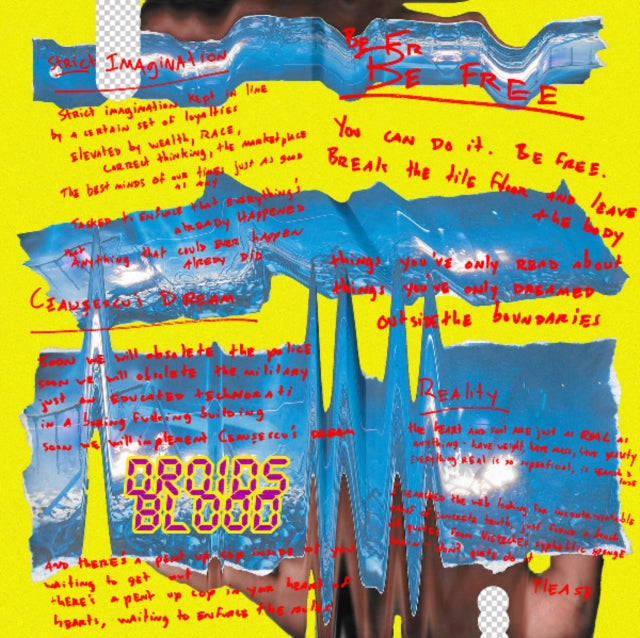 Strict IMAgiNATION
Strict imagination kept in line
by a certain set of loyalties
Elevated by wealth, RACE,
correct thinking, the marketplace
The best minds of our times just as good
as any
TASKED to ENFORCE that EVERYthing's
alREADY HAPPENED
that
Anything that could EVER happen
AlREDY DID
CEAUSESCU'S DREAM
Soon we will obsolete the police
soon we will obsolete the military
just an Educated technorati
in a boring fucking building
soon we will implement CEAUSESCU'S DREAM
DROIDS
BLOOD
And there's a pent up cop inside of you
waiting to get out
there's a pent up cop in your heart of
hearts, waiting to ENFORCE the rules
BE FR
BE FREE
You CAN DO it. BE FREE.
BREAK the tile floor AND LEAVE
the body
things you've only READ about
things you've only DREAMED
outside the BOUNDARIES
Reality
the HEART AND soul ARE just as REAL as
anything - have weight, have mass, have gravity
Everything REAL is so superficial, is
I searched the web looking for incontrovertable
of concrete truth, just found a bunch
of quotes from Nietzche's syphilitic sponge
brain don't quite do it
PLEASE